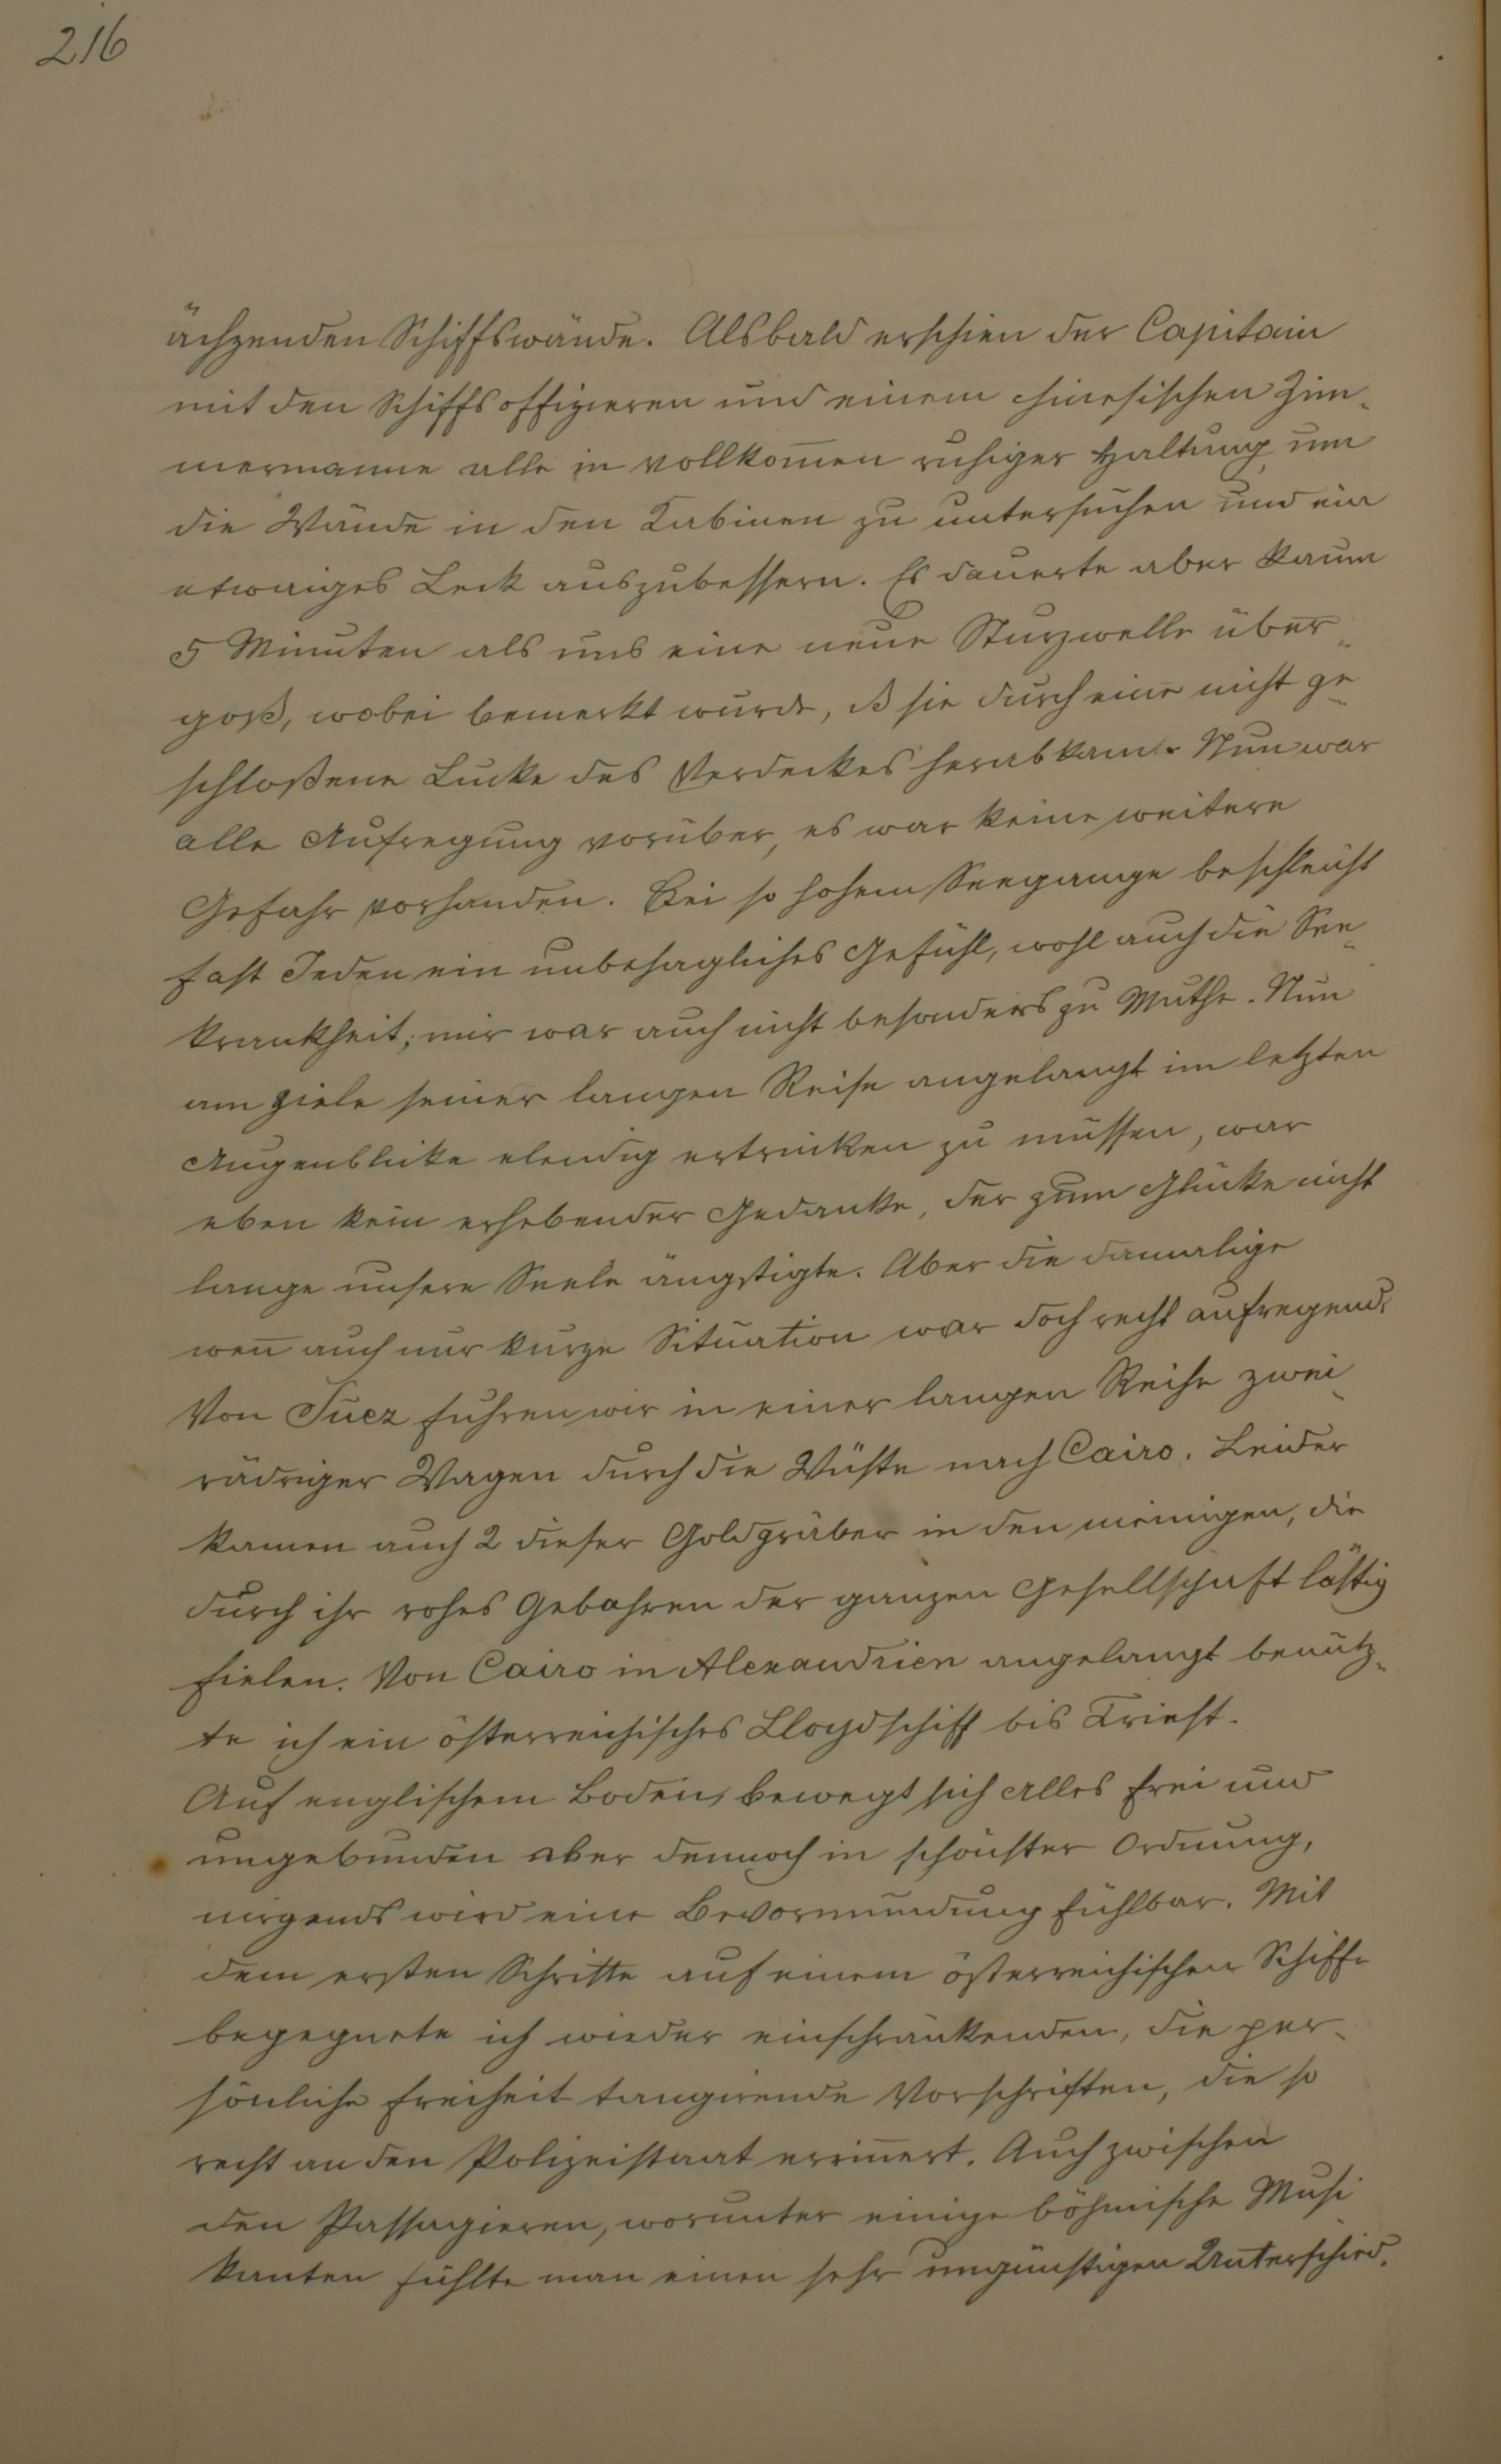 216
ächzenden Schiffswände. Alsbald erschien der Capitain
mit den Schiffsoffizieren und einem chinesischen Zim-
mermanne alle in vollkom̅en ruhiger Haltung um
die Wände in den Kabinen zu untersuchen und ein
etwaiges Leck auszubessern. Es dauerte aber kaum
5 Minuten als uns eine neue Sturzwelle über-
goß, wobei bemerkt wurde, ß sie durch eine nicht ge-
schloßene Lucke des Verdeckes herabkam. Nun war
alle Aufregung vorüber, es war keine weitere
Gefahr vorhanden. Bei so hohem Seegange beschleicht
fast Jeden ein unbehagliches Gefühl, wohl auch die See-
krankheit; mir war auch nicht besonders zu Muthe. Nun
am Ziele seiner langen Reise angelangt im letzten
Augenblicke elendig ertrinken zu müssen, war
eben kein erhebender Gedanke, der zum Glücke nicht
lange unsere Seele ängstigte. Aber die damalige
wen̅ auch nur kurze Situation war doch recht aufregend.
Von Suez fuhren wir in einer langen Reihe zwei-
rädriger Wagen durch die Wüste nach Cairo. Leider
kamen auch 2 dieser Goldgräber in den meinigen, die
durch ihr rohes Gebahren der ganzen Gesellschaft lästig
fielen. Von Cairo in Alexandrien angelangt benütz-
te ich ein österreichisches Lloydschiff bis Triest.
Auf englischem Boden, bewegt sich Alles frei und
ungebunden aber dennoch in schönster Ordnung,
nirgends wird eine Bevormundung fühlbar. Mit
dem ersten Schritte auf einem österreichischen Schiffe
begegnete ich wieder einschränkenden, die per-
sönliche Freiheit tangirende Vorschriften, die so
recht an den Polizeistaat errin̅ert. Auch zwischen
den Passagieren, worunter einige böhmische Musi
kanten fühlte man einen sehr ungünstigen Unterschied.